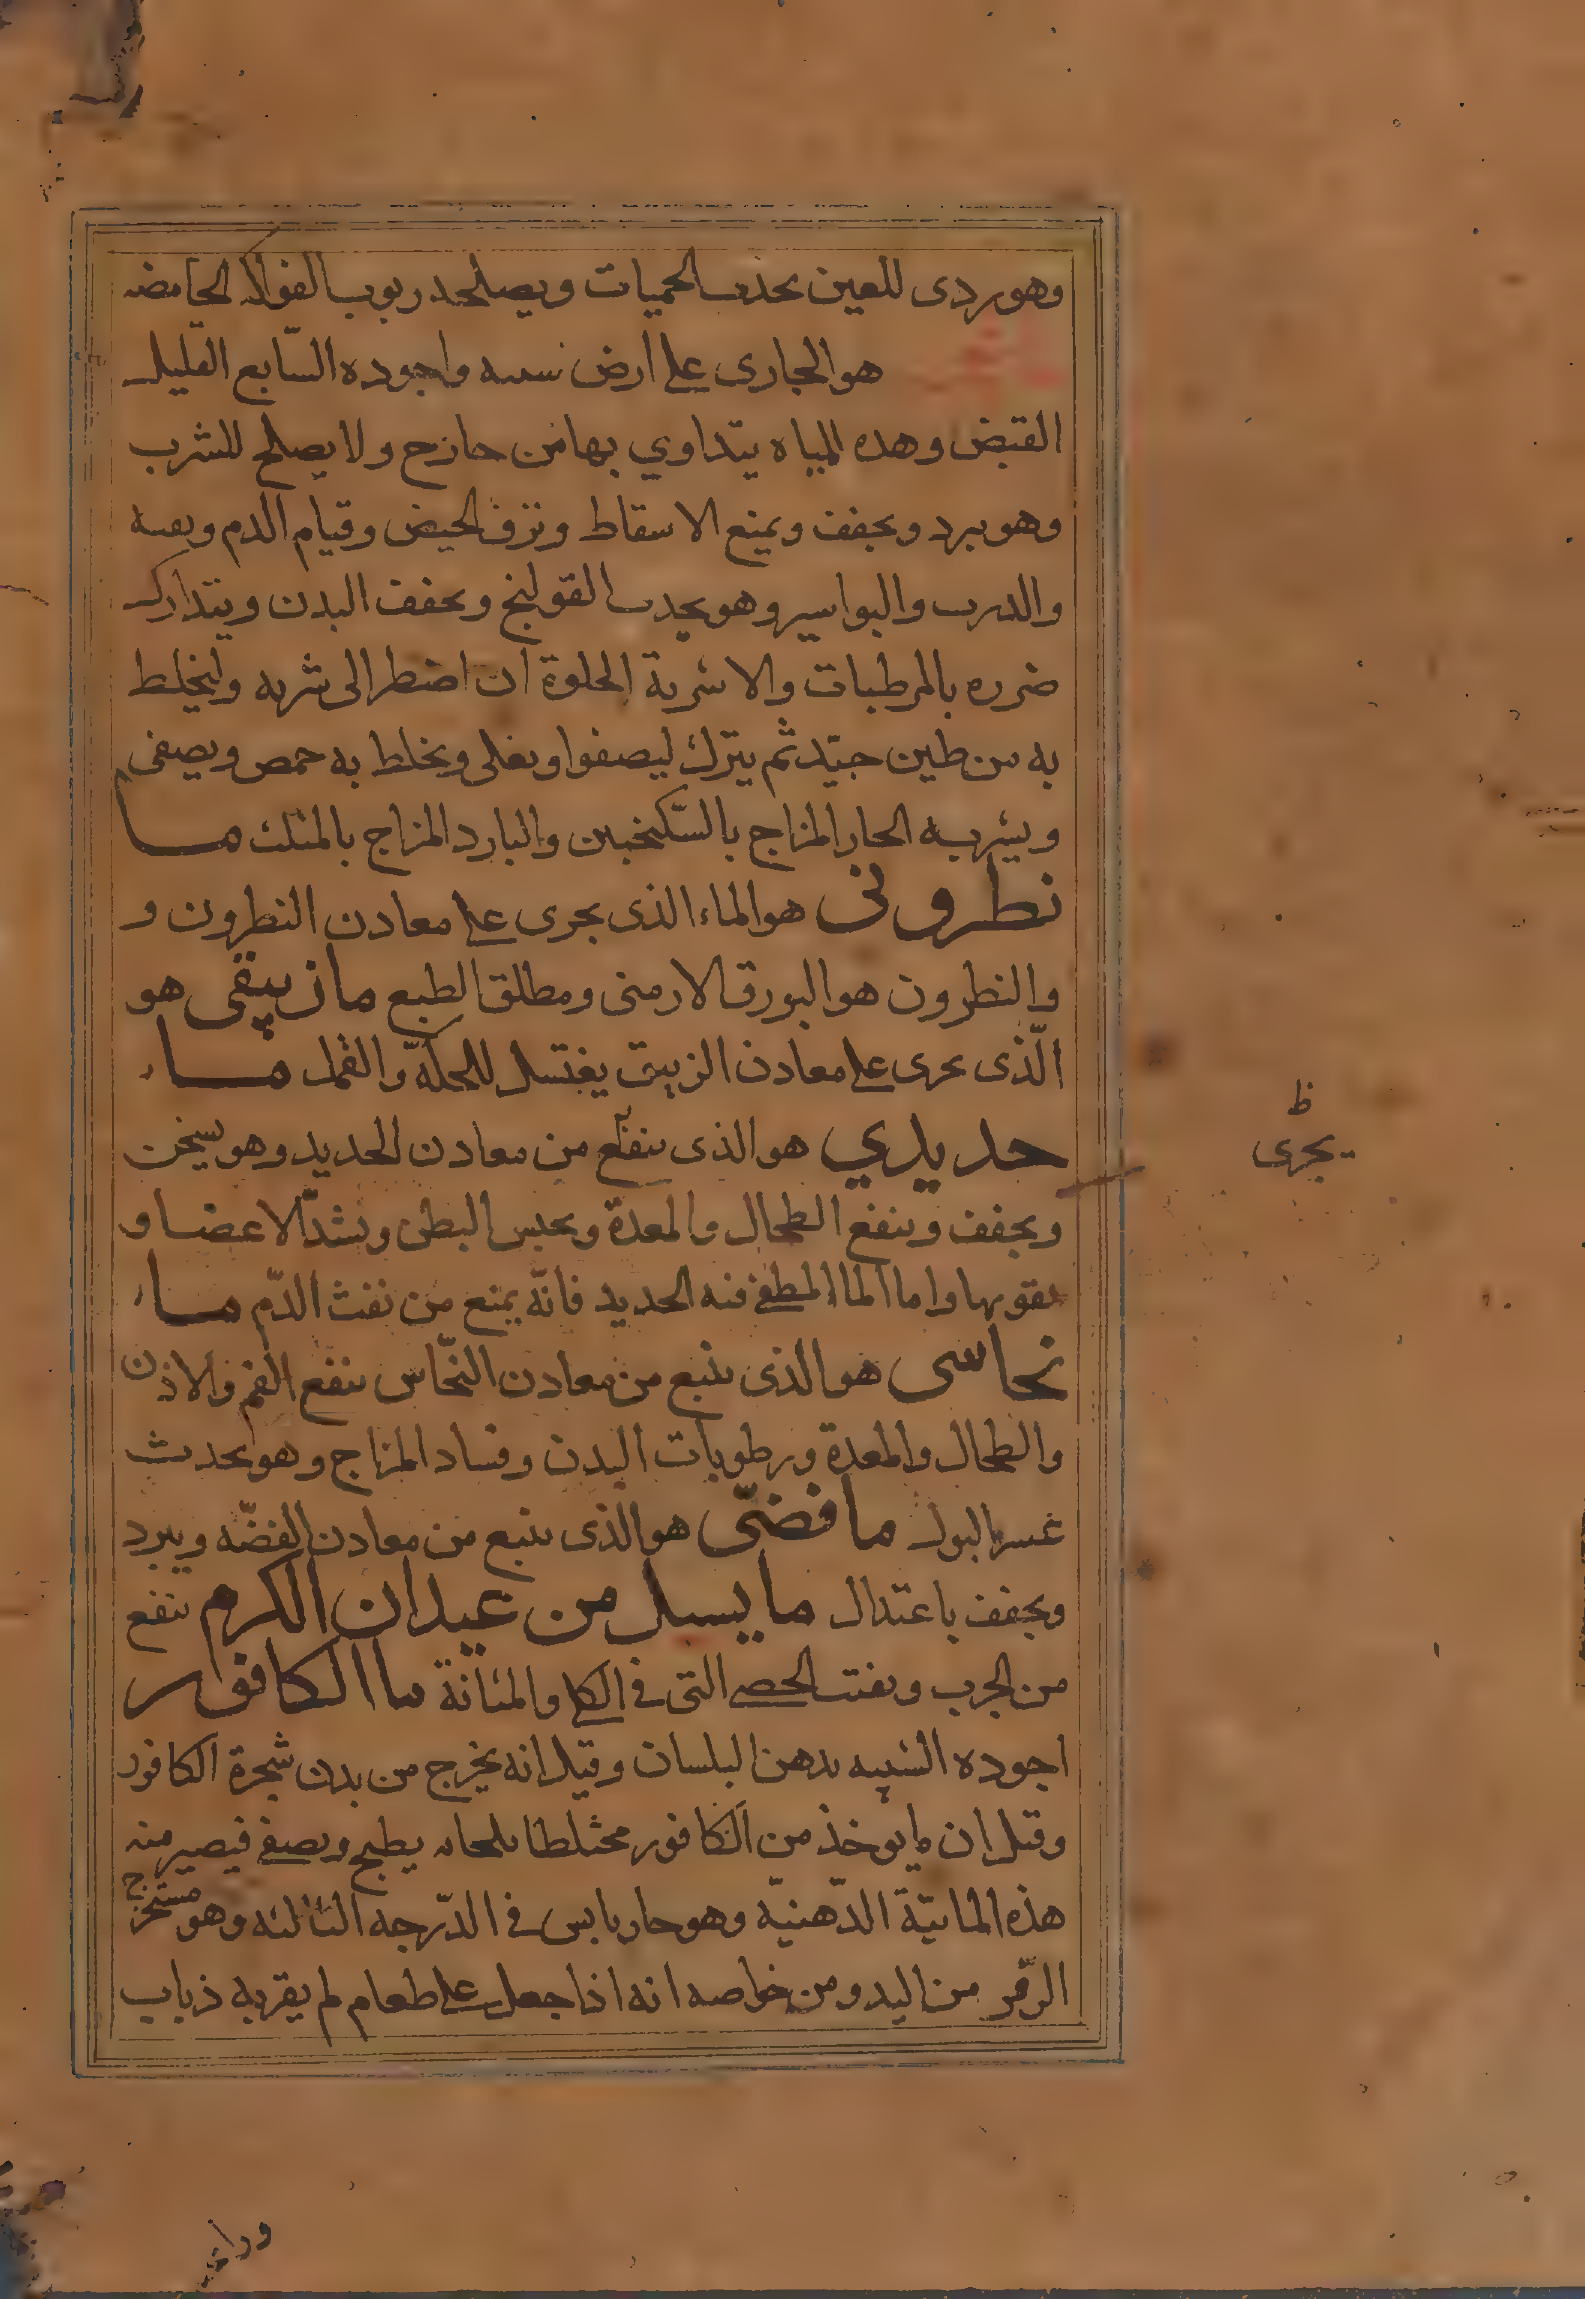 وهو ردى للعين يحدث الحميات ويصلحه ربوب الفواكه الحامضه
هو الجارى على ارض شبيه واجوده السّابع القليل
القبض وهذه المياه يتداوي بها من خارج ولا يصلح للشرب
وهو يبرد ويجفف ويمنع الاسقاط ونزف الحيض وقيام الدم وبعسه
والذرب والبواسير وهو يحدث القولنج ويجفف البدن ويتدارك
ضرره بالمرطبات والاشربة الحلوة ان اضطر الى شربه وليخلط
به من طين جيّد ثم يترك ليصفوا ويغلى ويخلط به حمص ويصفى
ويشربه الحار المزاج بالسّكنجبين والبارد المزاج بالمثلث ما
نطرونى هو الماء الذى يجرى على معادن النطرون و
والنطرون هو البورق الارمنى ومطلق الطبع ما زيبقى هو
الّذى يجرى على معادن الزيبق يغتسل للحكّة والقمل ماء
حديدي هو الذى ينفلع من معادن الحديد وهو يسخن
ويجفف وينفع الطحال والمعدة ويحبس البطن ويشدّ الاعضا و
يقويها واما الماا المطفى فيه الحديد فانّه يمنع من نفث الدّم ماء
نحاسى هو الذى ينبع من معادن النحّاس ينفع الفم والاذن
والطحال والمعدة ورطوبات البدن وفساد المزاج وهو يحدث
عسر البول ما فضىّ هو الذى ينبع من معادن الفضّه ويبرد
ويجفف باعتدال ما يسيل من عيدان الكرم ينفع
من الجرب ويفتت الحصى التى فى الكلى والمثانة ما الكافور
اجوده الشبيه بدهن البلسان وقيل انه يخرج من بدن شجرة الكافور
وقيل ان ما يوخذ من الكافور مختلطا بلحاه يطبخ ويصفى فيصير منه
هذه المائيّة الدّهنيّه وهو حار يابس فى الدّرجه الثالثه وهو مستخرج
الزّفر من اليد ومن خواصه انه اذا جعل على طعام لم يقربه ذباب
ظ
يجرى